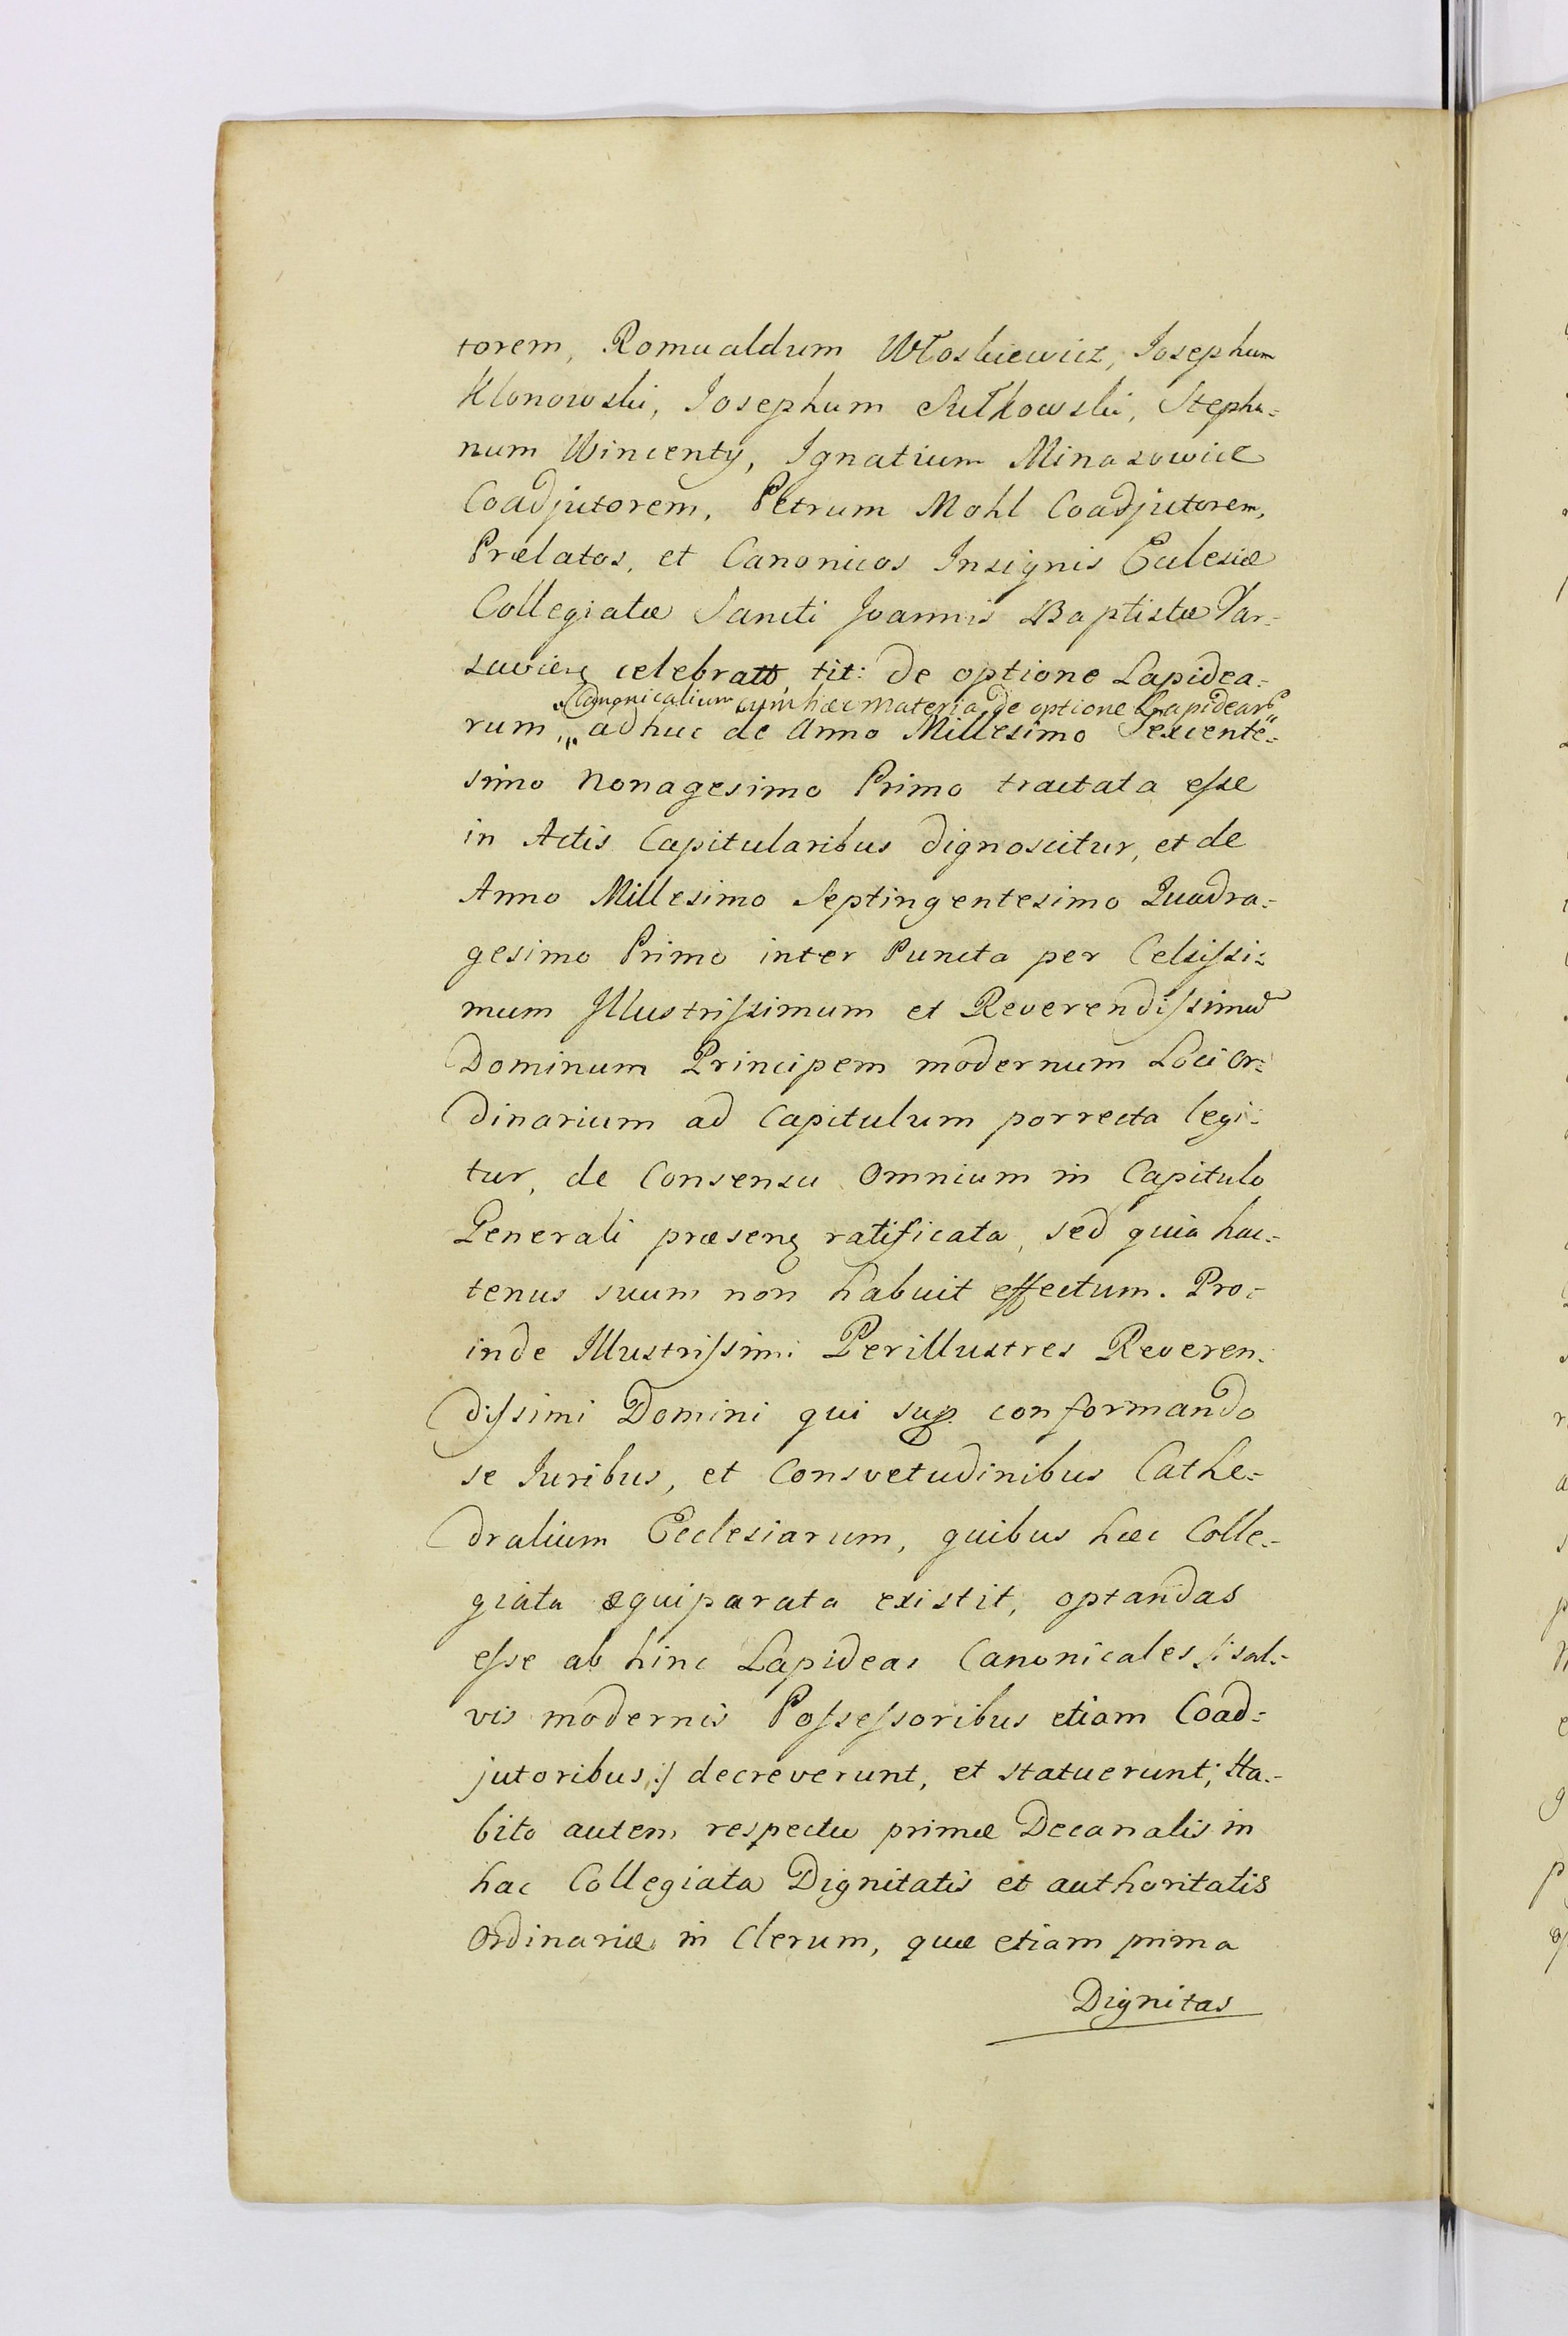 torem, Romualdum Włoskiewicz, Iosephum
Klonowski, Iosephum Sułkowski, Stepha=
num Wincenty, Ignatium Minasowicz
Coadjutorem, Petrum Mohl Coadjutorem,
Prælatos, et Canonicos Insignis Ecclesiæ
Collegiatæ Sancti Joannis Baptistæ Var=
saviens celebratt, tit: de optione Lapidea=
„Canonicalium cum hæc materia de optione Lapidear
rum „ adhuc de Anno Millesimo Sexcente=
simo Nonagesimo Primo tractata eſse
in Actis Capitularibus dignoscitur, et de
Anno Millesimo Septingentesimo Quadra=
gesimo Primo inter Puncta per Celsiſsi=
mum Illustriſsimum et Reverendiſsimū
Dominum Principem modernum Loci Or=
dinarium ad Capitulum porrecta legi=
tur, de Consensu Omnium in Capitulo
Generali præsens ratificata, sed quia hac=
tenus suum non habuit effectum. Pro=
inde Illustriſsimi Perillustres Reveren=
diſsimi Domini qui sup. conformando
se Iuribus, et Consvetudinibus Cathe=
dralium Ecclesiarum, quibus hæc Colle=
giata æquiparata existit, optandas
eſse ab hinc Lapideas Canonicales /: sal=
vis modernis Poſseſsoribus etiam Coad=
jutoribus :/ decreverunt, et statuerunt; Ha=
bito autem respectu primæ Decanalis in
hac Collegiata Dignitatis et authoritatis
Ordinariæ in Clerum, quæ etiam prima
Dignitas